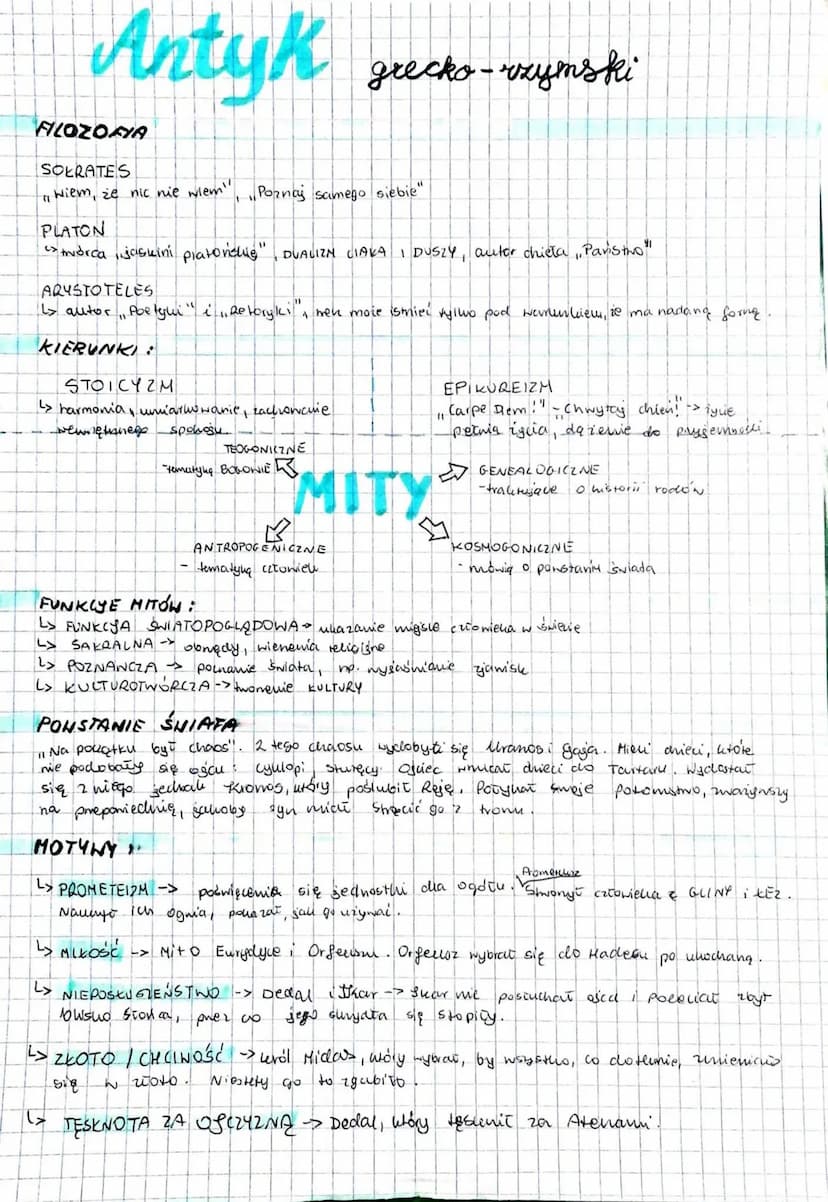 Antyk grecko-rzymski
FILOZOFIA
SOKRATES
„Wiem, że nic nie wiem", „Poznaj samego siebie"
PLATON
↳ twórca „jaskini platońskiej", DUALIZM CIAŁA I DUSZY, autor dzieła „Państwo"
ARYSTOTELES
↳ autor „Poetyki" i „Retoryki", może istnieć tylko pod warunkiem, że ma nadaną formę.
KIERUNKI:
STOICYZM
↳ harmonia, umiarkowanie, zachowanie
wewnętrznego spokoju
EPIKUREIZM
„Carpe Diem!" - „Chwytaj dzień!" -> życie
pełnią życia, dążenie do przyjemności
MITY
TEOGONICZNE
- tematyka BOGOWIE
GENEALOGICZNE
- traktujące o historii rodów
ANTROPOGENICZNE
- tematyką człowiek
KOSMOGONICZNE
- mówią o powstaniu świata
FUNKCJE MITÓW:
↳ FUNKCJA ŚWIATOPOGLĄDOWA -> ukazanie miejsca człowieka w świecie
↳ SAKRALNA -> obrzędy, wierzenia religijne
↳ POZNAWCZA -> poznanie świata, np. wyjaśnianie zjawisk
↳ KULTUROTWÓRCZA -> tworzenie KULTURY
POWSTANIE ŚWIATA
„Na początku był chaos". Z tego chaosu wydobyli się Uranos i Gaja. Mieli dzieci, które
nie podobały się ojcu: cyklopi, sturęcy. Ojciec wrzucał dzieci do Tartaru. Wydostał
się z niego jednak Kronos, który poślubił Reję. Połykał swoje potomstwo, zważywszy
na przepowiednię, jakoby syn miał strącić go z tronu.
MOTYWY:
↳ PROMETEIZM -> poświęcenia się jednostki dla ogółu. Prometeusz Stworzył człowieka z GLINY i ŁEZ.
Nauczył ich ognia, pokazał, jak go używać.
↳ MIŁOŚĆ -> Mit o Eurydyce i Orfeuszu. Orfeusz wybrał się do Hadesu po ukochaną.
↳ NIEPOSŁUSZEŃSTWO -> Dedal i Ikar -> Ikar nie posłuchał ojca i poleciał zbyt
blisko słońca, przez co jego skrzydła się stopiły.
↳ ZŁOTO / CHCIWOŚĆ -> król Midas, który wybrał, by wszystko, co dotknie, zmieniało
się w złoto. Niestety go to zgubiło.
↳ TĘSKNOTA ZA OJCZYZNĄ -> Dedal, który tęsknił za Atenami.